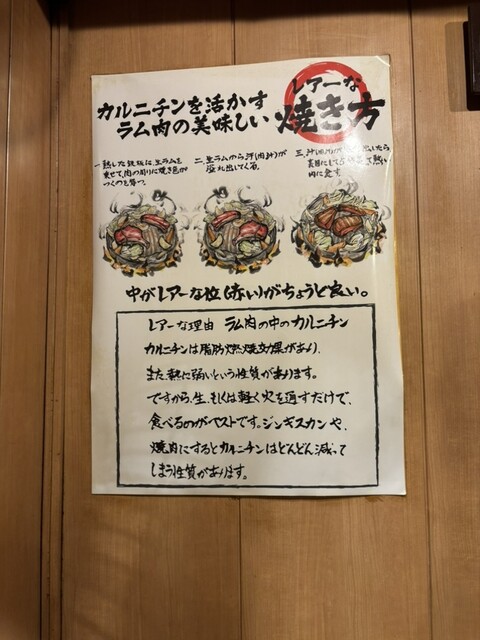 カルニチンを活かす
ラム肉の美味しい
レアーな
焼き方
一、熱した鉄板に生ラムを
乗せて、肉の周りに焼き色が
つくのを待つ。
二、生ラムから汁(肉汁)が
溢れ出してくる。
三、汁(肉汁)が
出したら
裏返にして
熱い
内に食す。
中がレアーな位(赤い)がちょうど良い。
レアーな理由 ラム肉の中のカルニチン
カルニチンは脂肪燃焼効果があり、
また、熱に弱いという性質があります。
ですから、生、もしくは軽く火を通すだけで、
食べるのがベストです。ジンギスカンや、
焼肉にするとカルニチンはどんどん減って
しまう性質があります。